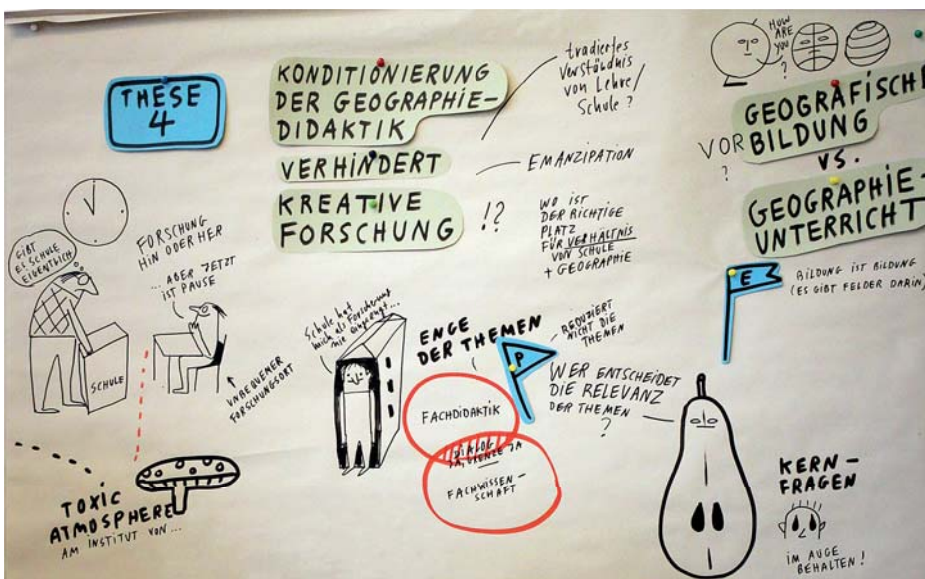 THESE
4
KONDITIONIERUNG
DER GEOGRAPHIE-
DIDAKTIK
VERHINDERT
KREATIVE
FORSCHUNG
!?
tradiertes
Verständnis
von Lehre/
Schule?
EMANZIPATION
WO IST
DER RICHTIGE
PLATZ
FÜR VERHÄLTNIS
VON SCHULE
+ GEOGRAPHIE
HOW
ARE
YOU
?
VOR
?
GEOGRAFISCHE
BILDUNG
VS.
GEOGRAPHIE-
UNTERRICHT
E
BILDUNG IST BILDUNG
(ES GIBT FELDER DARIN)
GIBT
ES SCHULE
EIGENTLICH
SCHULE
FORSCHUNG
HIN ODER HER
... ABER JETZT
IST PAUSE
UNBEQUEMER
FORSCHUNGSORT
TOXIC
ATMOSPHERE
AM INSTITUT VON...
Schule hat
mich als Forscherin
nie eingeengt...
ENGE
DER THEMEN
P
REDUZIERT
NICHT DIE
THEMEN
FACHDIDAKTIK
DIALOG
JA, GRENZE JA
FACHWISSEN-
SCHAFT
WER ENTSCHEIDET
DIE RELEVANZ
DER THEMEN
?
KERN-
FRAGEN
IM AUGE
BEHALTEN!